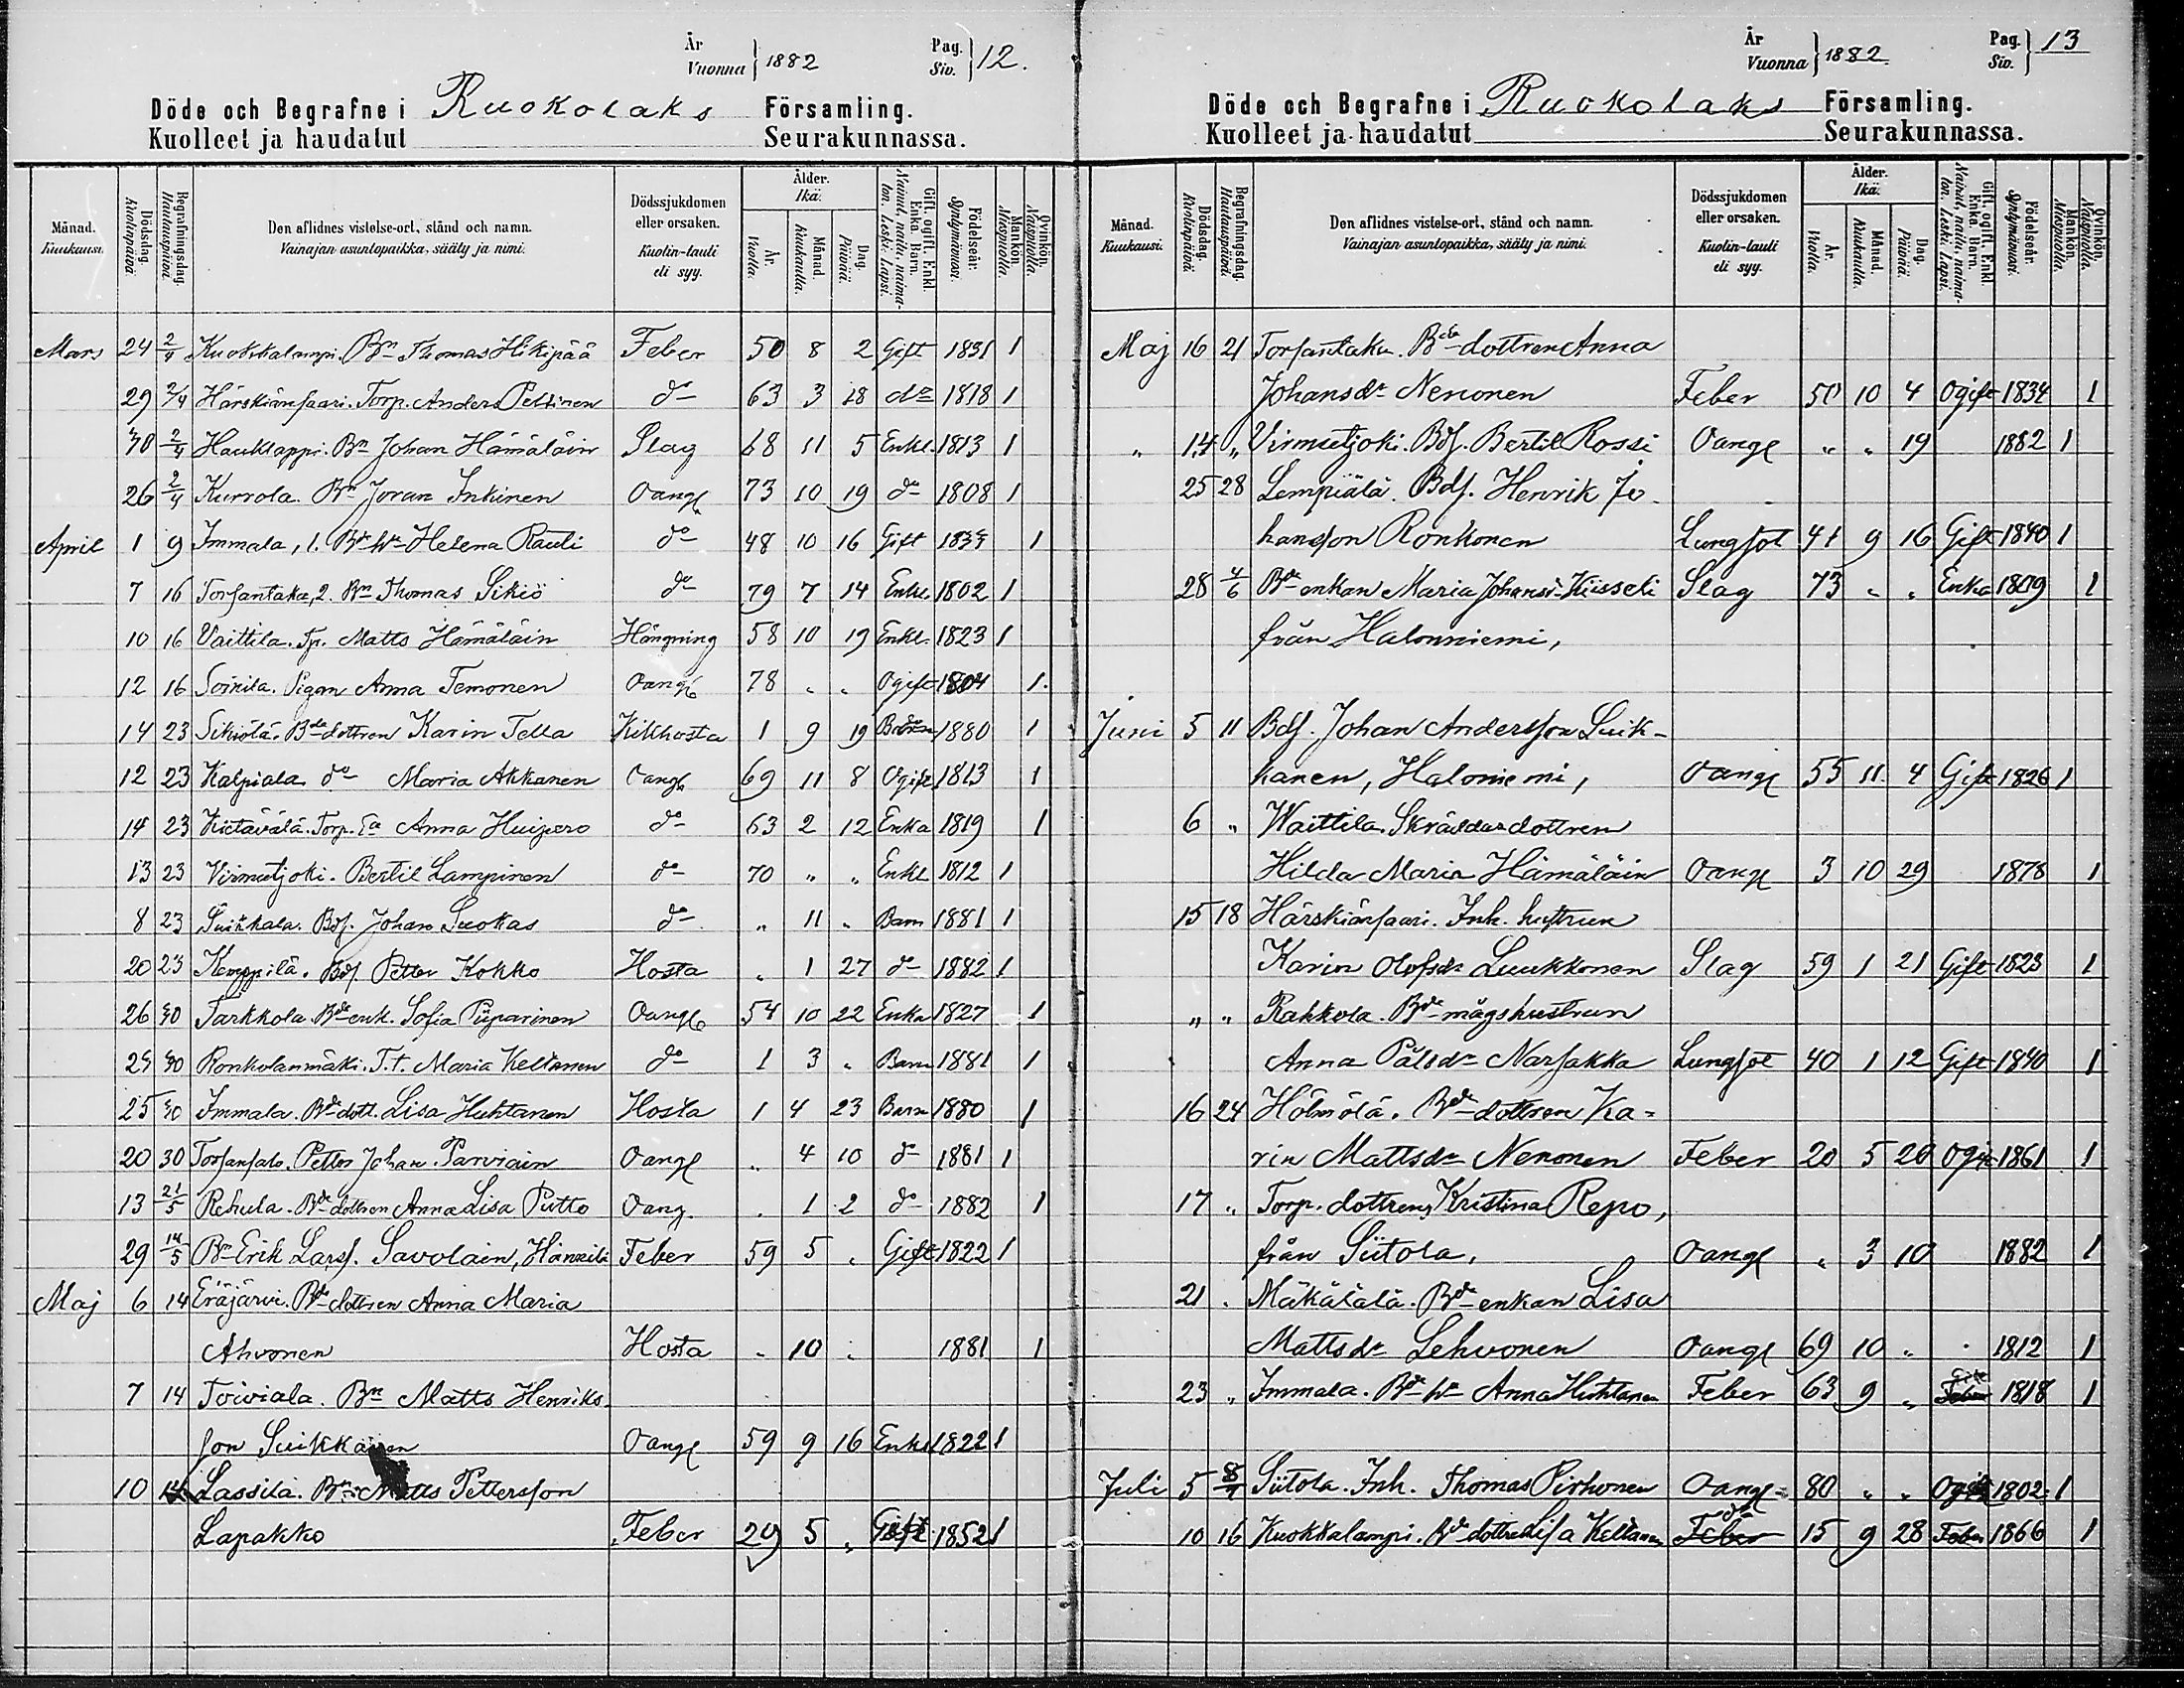 År
Vuonna } 1882
Pag.
Siv. } 12.
Döde och Begrafne i Ruokolaks Församling.
Kuolleet ja haudatut Seurakunnassa.
Månad. Kuukausi.
Dödsdag. Kuolinpäivä.
Begrafningsdag. Hautauspäivä.
Den aflidnes vistelse-ort, stånd och namn.
Vainajan asuntopaikka, sääty ja nimi.
Dödssjukdomen eller orsaken.
Kuolin-tauti eli syy.
Ålder. Ikä.
År. Vuotta.
Månad. Kuukautta.
Dag. Päivää.
Gift, ogift, Enkl. Enka. Barn. Nainut, naitu, naimaton. Leski. Lapsi.
Födelseår. Syntymävuosi.
Mankön. Miespuolia.
Qvinkön. Naispuolia.
Mars 24 2/4 Kuokkalampi. Bn Thomas Hikipää Feber 50 8 2 Gift 1831 1
29 2/4 Härskiänsaari. Torp. Anders Peltinen do 63 3 28 do 1818 1
30 2/4 Hauklappi. Bn Johan Hämäläin Slag 68 11 5 Enkl. 1813 1
26 2/4 Kurrola. Bn Joran Inkinen Oangl 73 10 19 do 1808 1
April 1 9 Immala, 1. Bde h. Helena Rauti do 48 10 16 Gift 1833 1
7 16 Torsantaka, 2. Bn Thomas Sikiö do 79 7 14 Enkl. 1802 1
10 16 Vaittila. Tp. Matts Hämäläin Hängning 58 10 19 Enkl. 1823 1
12 16 Soinila. Pigan Anna Temonen Oangl 78 " " Ogift 1804 1
14 23 Sikiölä. Bde dottren Karin Tella Kikhosta 1 9 19 Barn 1880 1
12 23 Kalpiala do Maria Akkanen Oangl 69 11 8 Ogift 1813 1
14 23 Kietävälä. Torp. Ea Anna Huipero do 63 2 12 Enka 1819 1
13 23 Virmutjoki. Bertil Lampinen do 70 " " Enkl 1812 1
8 23 Suikkala. Bdf. Johan Suokas do " 11 " Barn 1881 1
20 23 Kemppilä. Bdf Petter Kokko Hosta " 1 27 do 1882 1
26 30 Tarkkola. Bde enk. Sofia Piiparinen Oangl 54 10 22 Enka 1827 1
23 30 Ronkolanmäki. T.t. Maria Keltanen do 1 3 " Barn 1881 1
25 30 Immala. Bde dott. Lisa Huhtanen Hosta 1 4 23 Barn 1880 1
20 30 Torsansalo. Petter Johan Parviain Oangl " 4 10 do 1881 1
13 21/5 Rehula. Bde dottren Anna Lisa Putto Oang. " 1 2 do 1882 1
29 14/5 Bn Erik Larsf. Savolain, Feber 59 5 " Gift 1822 1
Maj 6 14 Eräjärvi. Bde dottren Anna Maria
Ahvonen Hosta " 10 " 1881 1
7 14 Toiviala. Bn Matts Henriks
son Suikkainen Oangl 59 9 16 Enkl 1822 1
10 14 Lassila. Bn Matts Pettersson
Lapakko Feber 29 5 " Gift 1852 1
År
Vuonna } 1882
Pag.
Siv. } 13
Döde och Begrafne i Ruokolaks Församling.
Kuolleet ja haudatut Seurakunnassa.
Månad. Kuukausi.
Dödsdag. Kuolinpäivä.
Begrafningsdag. Hautauspäivä.
Den aflidnes vistelse-ort, stånd och namn.
Vainajan asuntopaikka, sääty ja nimi.
Dödssjukdomen eller orsaken.
Kuolin-tauti eli syy.
Ålder. Ikä.
År. Vuotta.
Månad. Kuukautta.
Dag. Päivää.
Gift, ogift, Enkl. Enka. Barn. Nainut, naitu, naimaton. Leski. Lapsi.
Födelseår. Syntymävuosi.
Mankön. Miespuolia.
Qvinkön. Naispuolia.
Maj 16 21 Torsantaka. Bde dottren Anna
Johansdr Nenonen Feber 50 10 4 Ogift 1834 1
" 14 " Virmutjoki. Bdf. Bertil Rossi Oangl " " 19 1882 1
25 28 Lempiälä. Bdf. Henrik Jo-
hansson Ronkonen Lungsot 41 9 16 Gift 1840 1
28 4/6 Bde enkan Maria Johansdr Kiisseli Slag 73 " " Enka 1809 1
från Halonniemi,
Juni 5 11 Bdf. Johan Andersson Suik-
kanen, Haloniemi, Oangl 55 11 4 Gift 1826 1
6 " Waittila. Skräddardottren
Hilda Maria Hämäläin Oangl 3 10 29 1878 1
15 18 Härskiänsaari. Inh. hustrun
Karin Olofsdr Luukkonen Slag 59 1 21 Gift 1823 1
" " Rahkola. Bde mågshustrun
Anna Pålsdr Narsakka Lungsot 40 1 12 Gift 1840 1
16 24 Hölmölä. Bde dottren Ka-
rin Mattsdr Nenonen Feber 20 5 20 Ogift 1861 1
17 " Torp. dottren, Kristina Repo,
från Siitola, Oangl " 3 10 1882 1
21 " Mäkälälä. Bde enkan Lisa
Mattsdr Lehvonen Oangl 69 10 " " 1812 1
23 " Immala. Bde h. Anna Huhtanen Feber 63 9 " Gift 1818 1
Juli 5 8/7 Siitola. Inh. Thomas Pirhonen Oangl 80 " " Ogift 1802 1
10 16 Kuokkalampi. Bde dottren Lisa Keltanen do Feber 15 9 28 Feber 1866 1